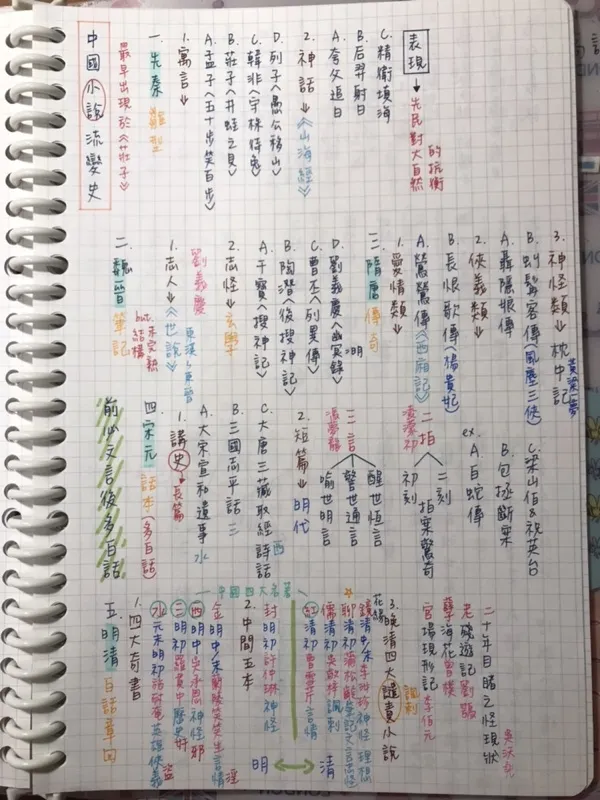 中國小說流變史
最早出現於《莊子》
一、先秦 雛型
1. 寓言↓
A. 孟子〈五十步笑百步〉
B. 莊子〈井蛙之見〉
C. 韓非〈守株待兔〉
D. 列子〈愚公移山〉
2. 神話↓《山海經》
A. 夸父追日
B. 后羿射日
C. 精衛填海
表現→先民對大自然的抗衡
二、魏晉 筆記
but 未完熟 結構
1. 志人↓《世說》 東漢~東晉
劉義慶
2. 志怪↓玄學
A. 干寶《搜神記》
B. 陶潛《後搜神記》
C. 曹丕《列異傳》
D. 劉義慶《幽冥錄》
明
三、隋唐 傳奇
1. 愛情類↓
A. 鶯鶯傳《西廂記》
B. 長恨歌傳 楊貴妃
2. 俠義類↓
A. 聶隱娘傳
B. 虯髯客傳 風塵三俠
3. 神怪類↓枕中記
黃粱一夢
前必文言後多白話
四、宋元 話本(多白話)
1. 講史→長篇
A. 大宋宣和遺事 水
B. 三國志平話 三
C. 大唐三藏取經詩話 西
2. 短篇↓明代
三言
馮夢龍
喻世明言
警世通言
醒世恆言
二拍
凌濛初
初刻
二刻
拍案驚奇
ex.
A. 白蛇傳
B. 包拯斷案
C. 梁山伯&祝英台
五、明清 白話章回
1. 四大奇書
中國四大名著
水 元末明初 施耐庵 英雄俠義 盜
三 明初 羅貫中 歷史 奸
西 明中 吳承恩 神怪 邪
金 明中末 蘭陵笑笑生 言情 淫
2. 中間五本
封 明初 許仲琳 神怪
紅 清初 曹雪芹 言情
儒 清初 吳敬梓 諷刺
聊 清初 蒲松齡 筆記文言志怪
鏡花緣 清中末 李汝珍 神怪 理想
明↔清
3. 晚清四大譴責小說
諷刺
官場現形記 李伯元
孽海花 曾樸
老殘遊記 劉鶚
二十年目睹之怪現狀
吳沃堯